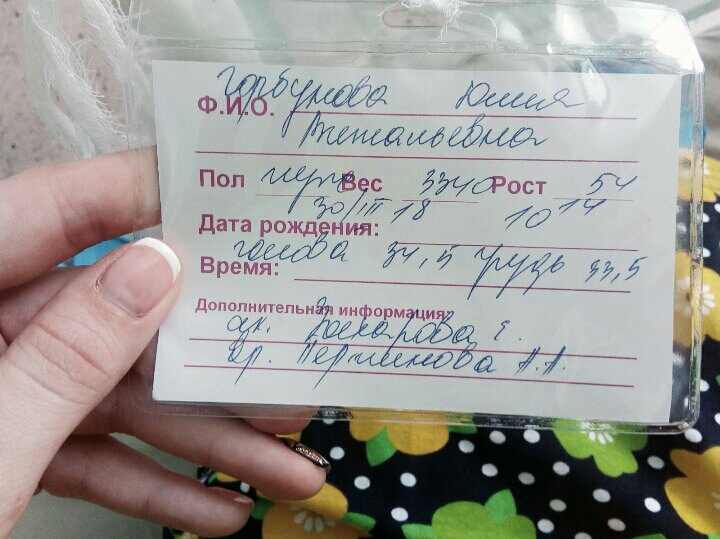 Ф.И.О. Горбунова Юлия
Витальевна
Пол муж Вес 3340 Рост 54
Дата рождения: 30/III 18 10 14
Время: голова 34,5 грудь 33,5
Дополнительная информация:
ак. Захарова Е.
др. Першинова А.А.